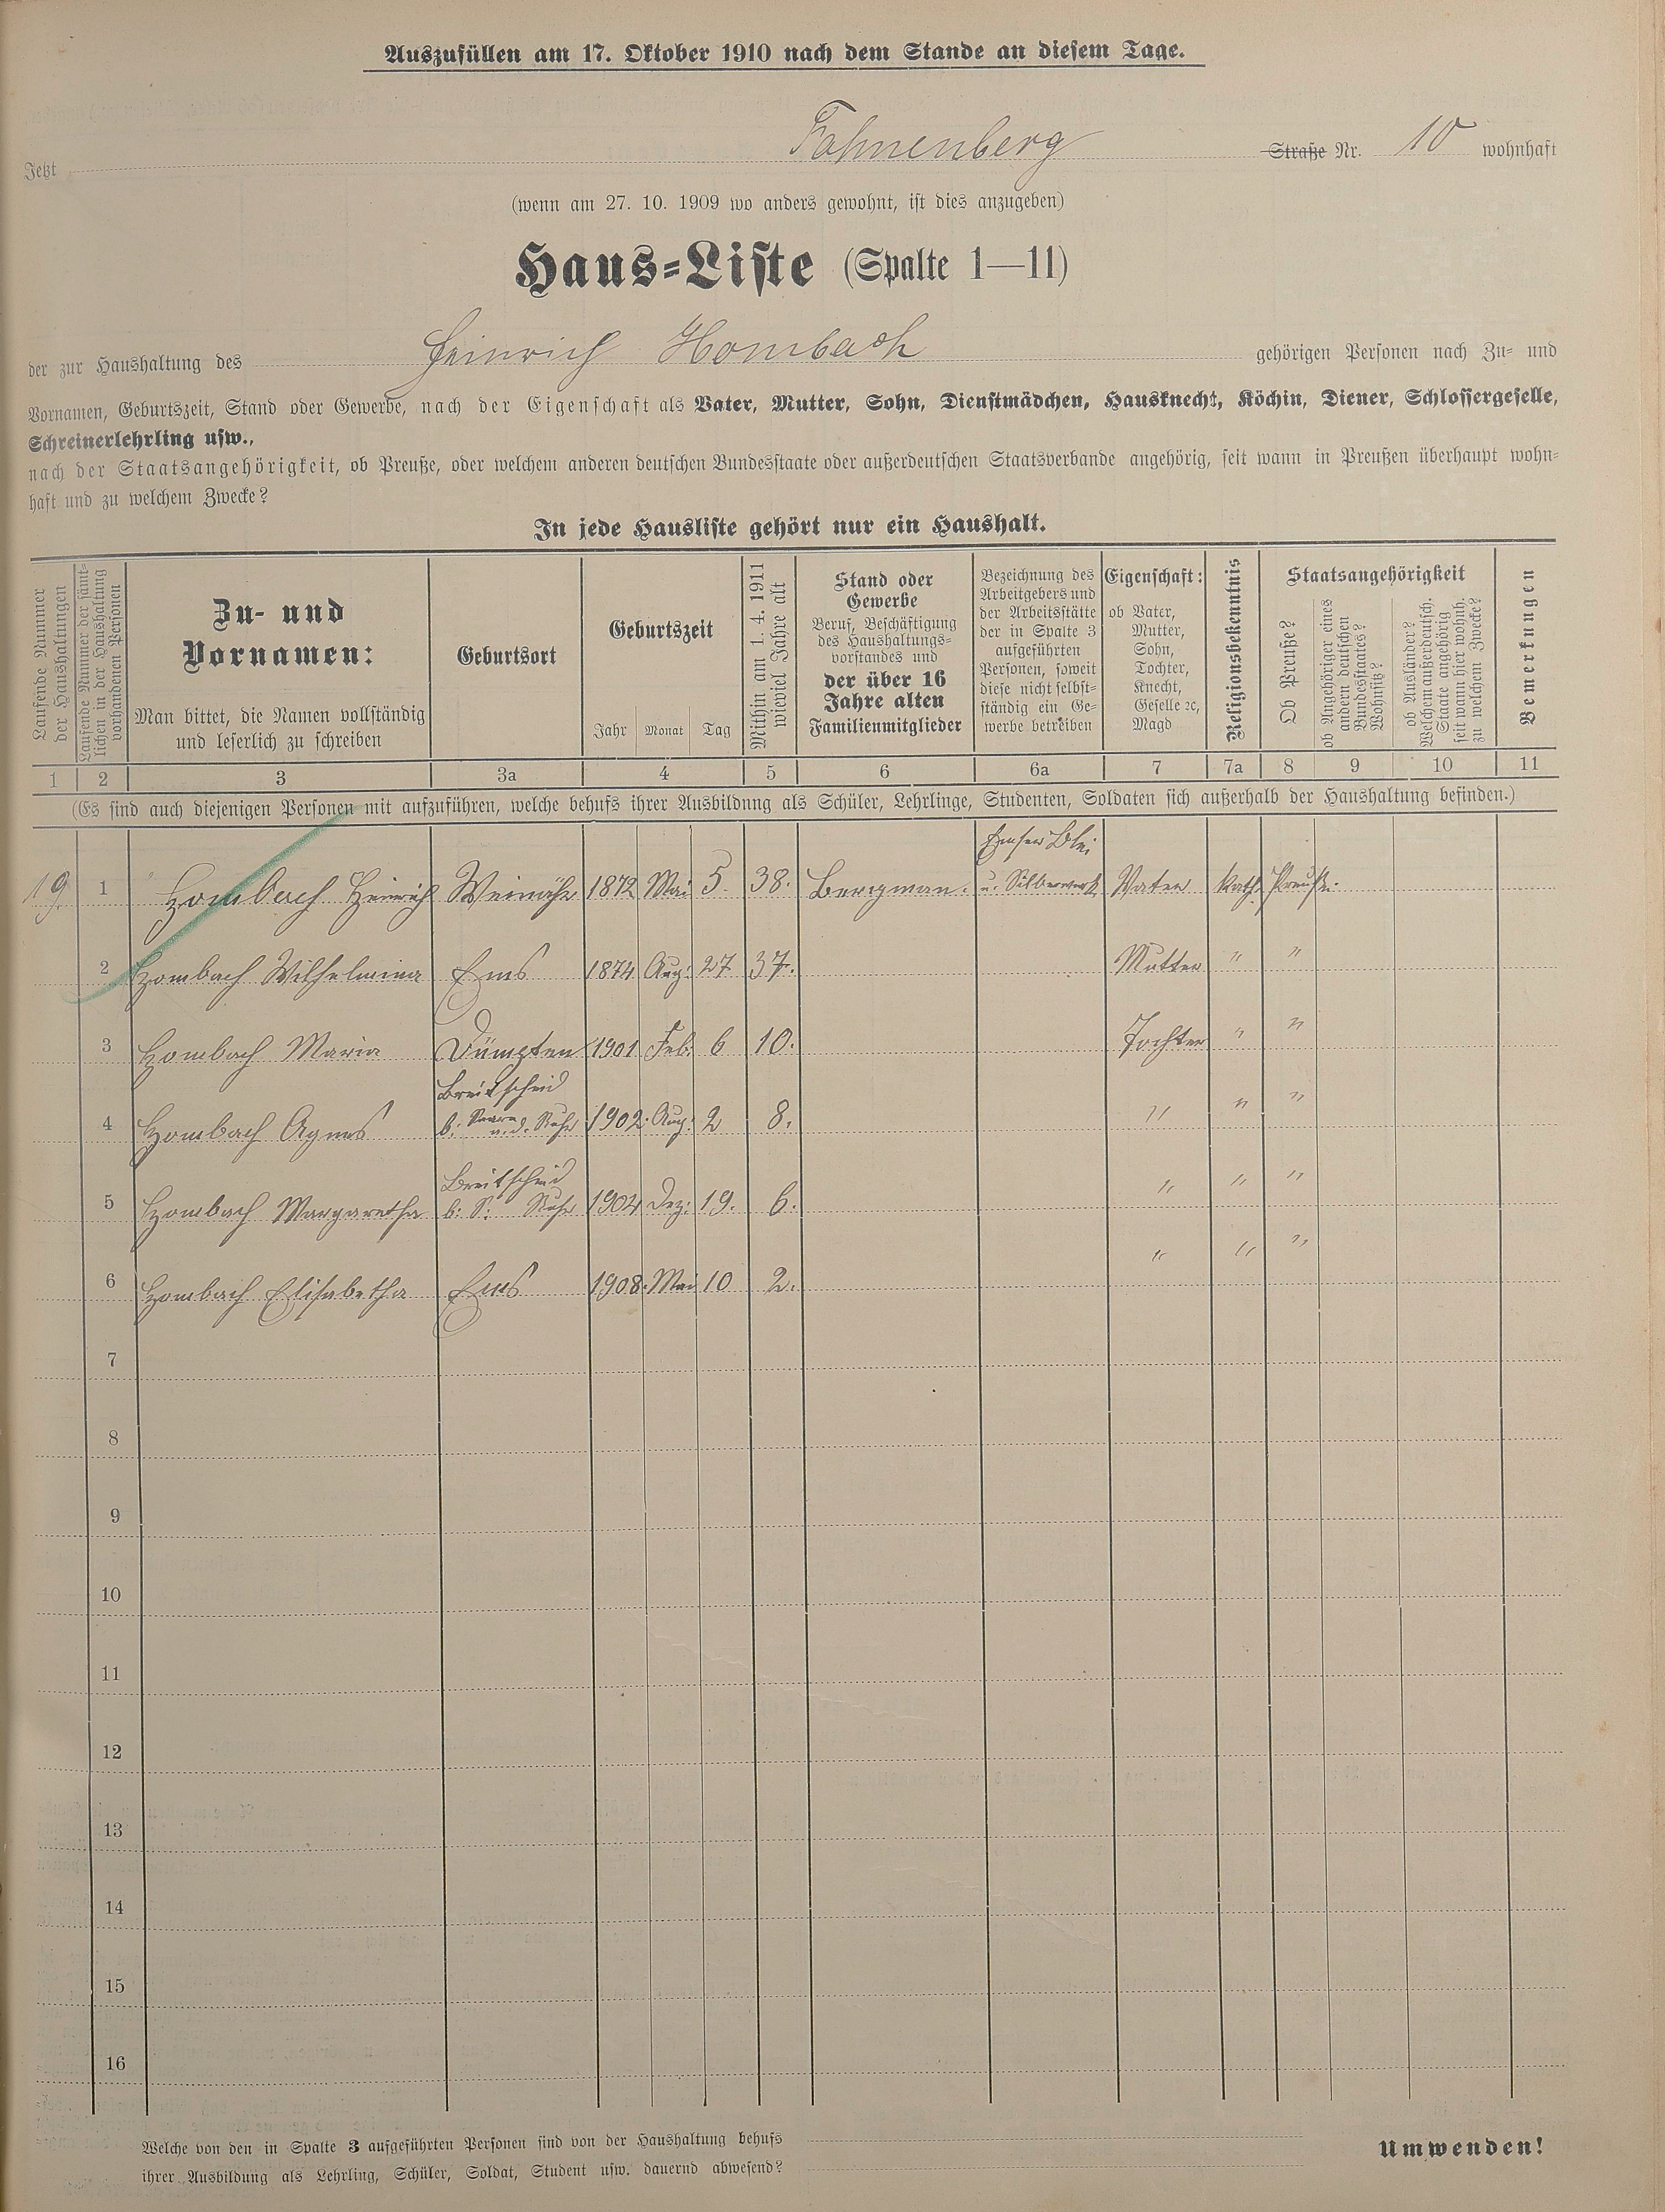 Auszufüllen am 17. Oktober 1910 nach dem Stande an diesem Tage.
Jetzt Fahnenberg Straße Nr. 10 wohnhaft
(wenn am 27. 10. 1909 wo anders gewohnt, ist dies anzugeben)
Haus-Liste (Spalte 1—11)
der zur Haushaltung des Heinrich Hombach gehörigen Personen nach Zu- und
Vornamen, Geburtszeit, Stand oder Gewerbe, nach der Eigenschaft als Vater, Mutter, Sohn, Dienstmädchen, Hausknecht, Köchin, Diener, Schlossergeselle,
Schreinerlehrling usw.,
nach der Staatsangehörigkeit, ob Preuße, oder welchem anderen deutschen Bundesstaate oder außerdeutschen Staatsverbande angehörig, seit wann in Preußen überhaupt wohn-
haft und zu welchem Zwecke?
In jede Hausliste gehört nur ein Haushalt.
Laufende Nummer
der Haushaltungen
Laufende Nummer der sämt-
lichen in der Haushaltung
vorhandenen Personen
Zu- und
Vornamen:
Man bittet, die Namen vollständig
und leserlich zu schreiben
Geburtsort
Geburtszeit
Jahr Monat Tag
Mithin am 1. 4. 1911
wieviel Jahre alt
Stand oder
Gewerbe
Beruf, Beschäftigung
des Haushaltungs-
vorstandes und
der über 16
Jahre alten
Familienmitglieder
Bezeichnung des
Arbeitgebers und
der Arbeitsstätte
der in Spalte 3
aufgeführten
Personen, soweit
diese nicht selbst-
ständig ein Ge-
werbe betreiben
Eigenschaft:
ob Vater,
Mutter,
Sohn,
Tochter,
Knecht,
Geselle ꝛc,
Magd
Religionsbekenntnis
Staatsangehörigkeit
Ob Preuße?
ob Angehöriger eines
andern deutschen
Bundesstaates?
Wohnsitz?
ob Ausländer?
Welchem außerdeutsch.
Staate angehörig
seit wann hier wohnh.
zu welchem Zwecke?
Bemerkungen
1 2 3 3a 4 5 6 6a 7 7a 8 9 10 11
(Es sind auch diejenigen Personen mit aufzuführen, welche behufs ihrer Ausbildung als Schüler, Lehrlinge, Studenten, Soldaten sich außerhalb der Haushaltung befinden.)
Emser Blei
19 1 Hombach Heinrich Weinähr 1872 Mai 5. 38. Bergman. u. Silberwerk Vater Kath. Preuße.
2 Hombach Wilhelmina Ems 1874 Aug. 27 37. Mutter " "
3 Hombach Maria Dümpten 1901 Feb. 6 10. Tochter " "
Breitscheid
4 Hombach Agnes b. a. d. Ruhr 1902. Aug. 2 8. " " "
Breitscheid
5 Hombach Margaretha b. S. Ruhr 1904 Dez: 19. 6. " " "
6 Hombach Elisabetha Ems 1908. Mai 10 2. " " "
7
8
9
10
11
12
13
14
15
16
Welche von den in Spalte 3 aufgeführten Personen sind von der Haushaltung behufs
ihrer Ausbildung als Lehrling, Schüler, Soldat, Student usw. dauernd abwesend?
Umwenden!